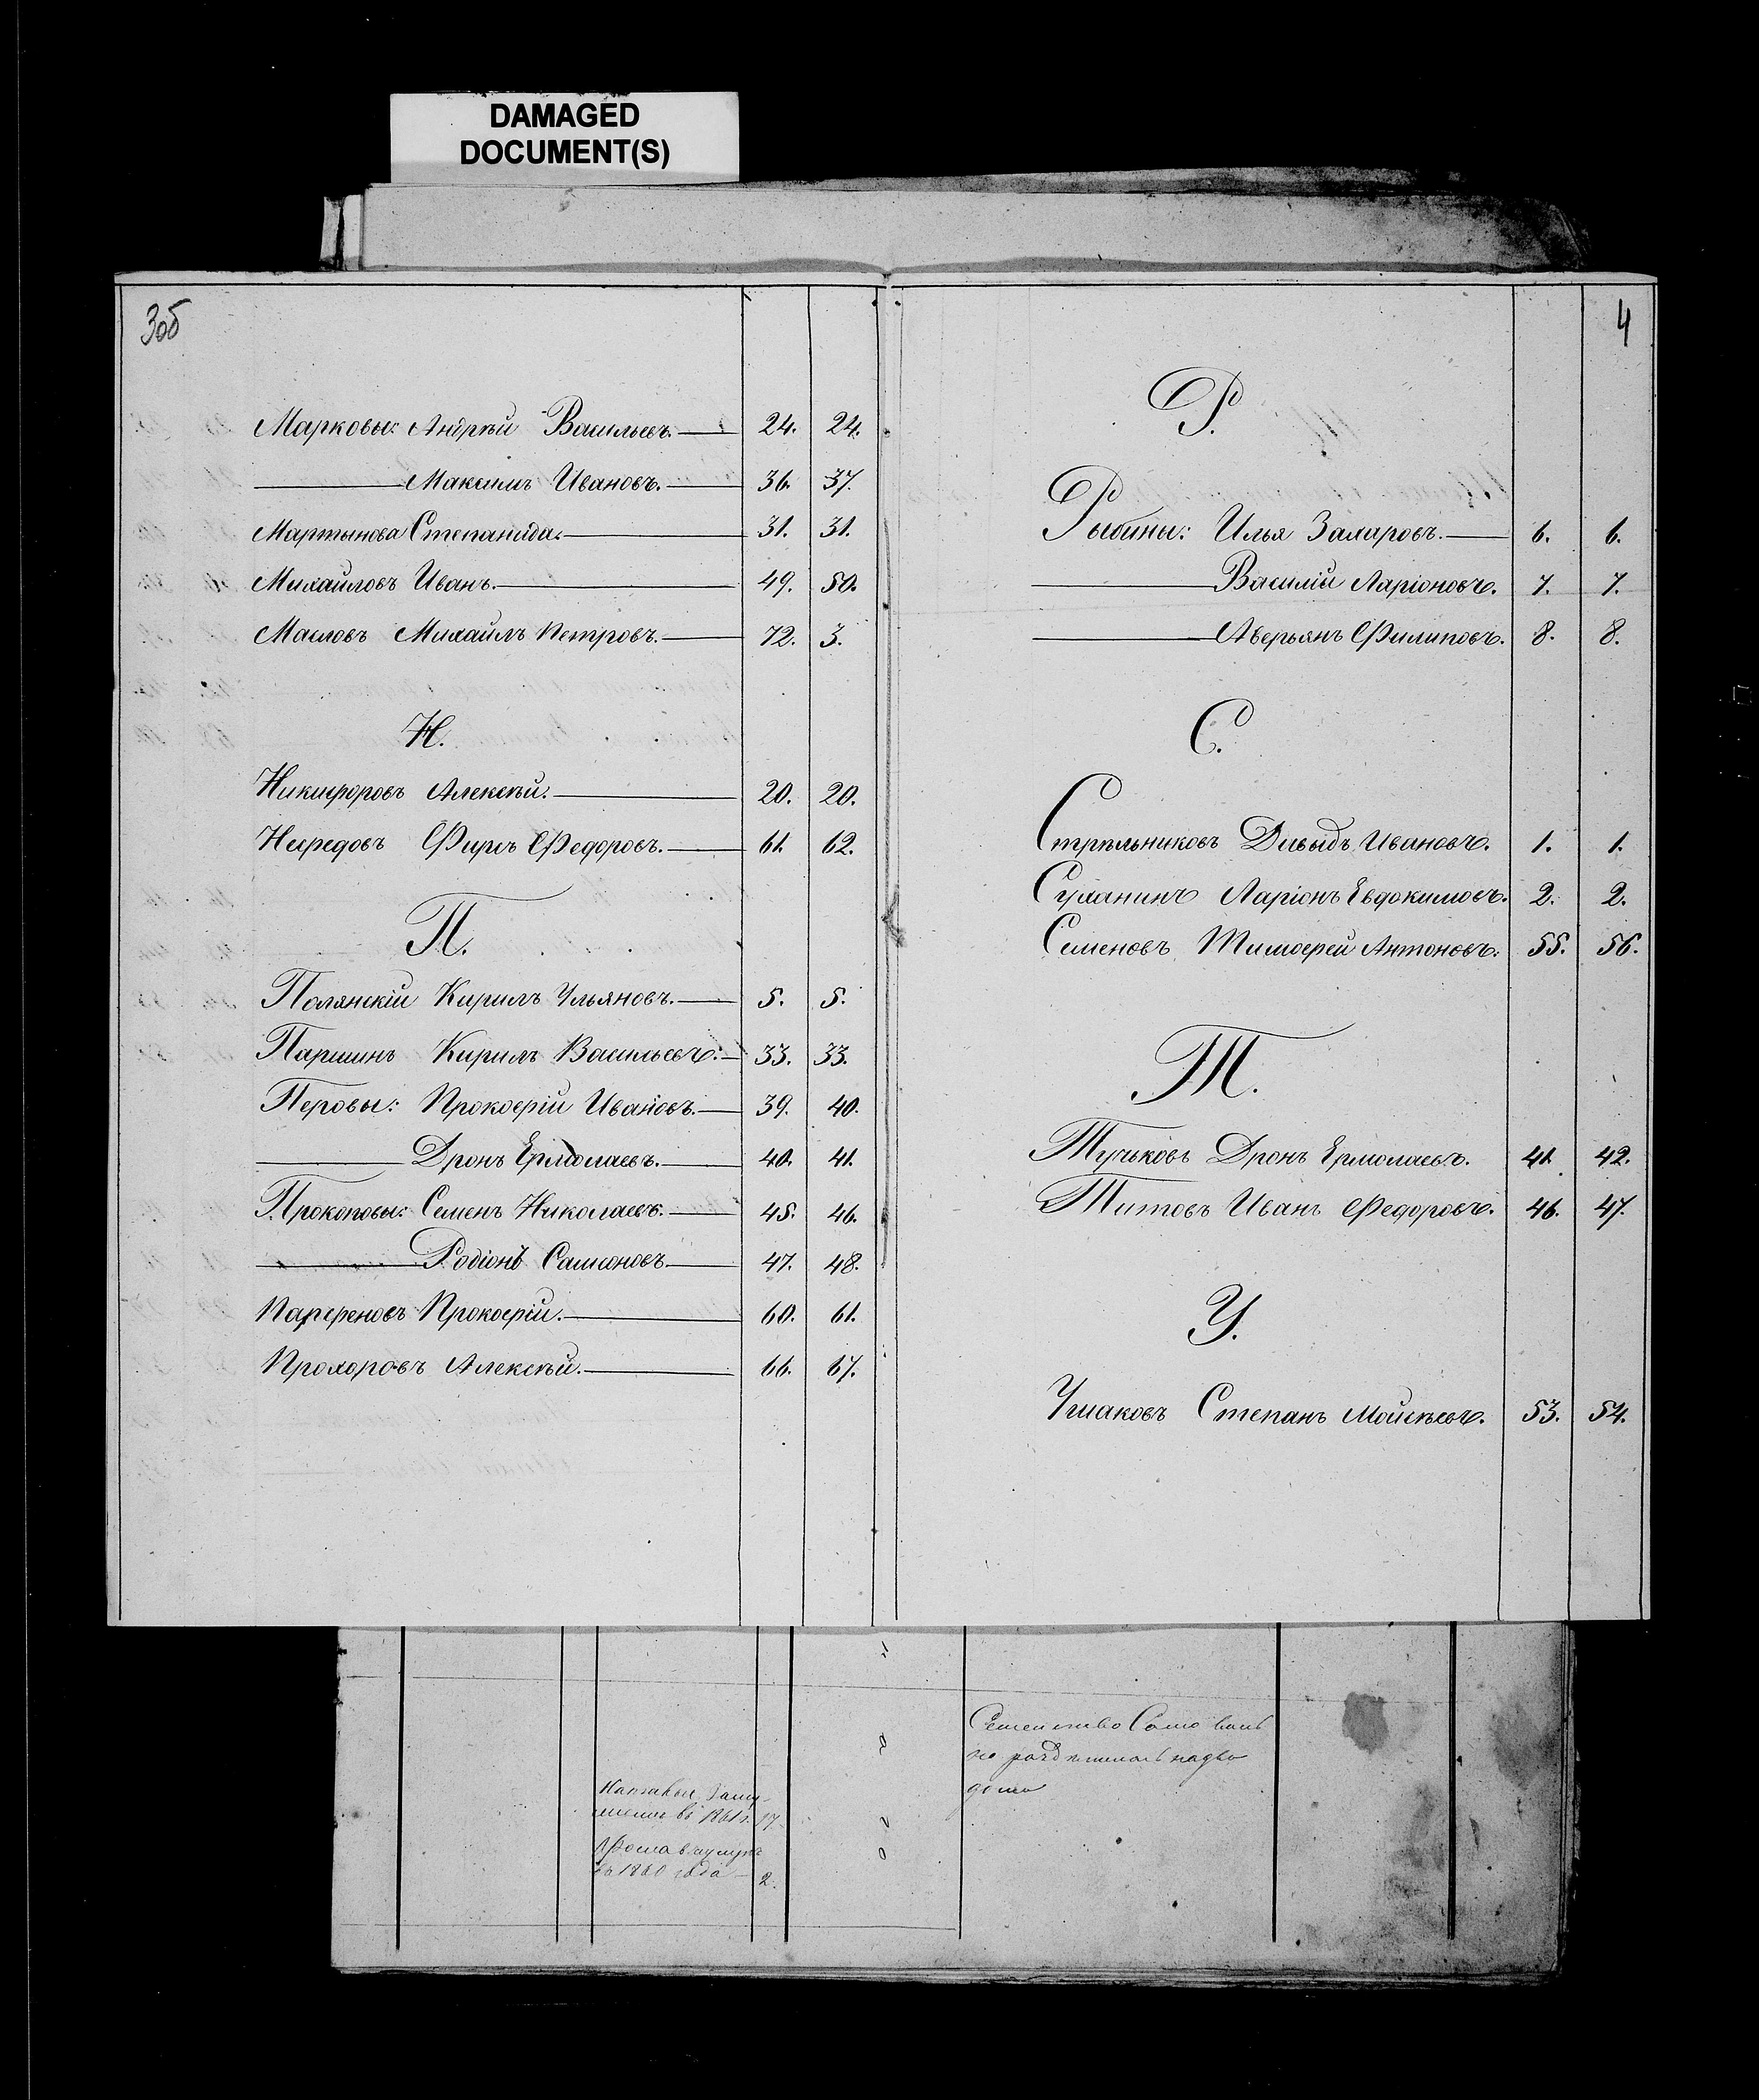 DAMAGED
DOCUMENT(S)
3об
Марковы: Андрѣй Васильевъ. 24. 24.
Максимъ Ивановъ. 36. 37.
Мартынова Степанида. 31. 31.
Михайловъ Иванъ. 49. 50.
Масловъ Михайлъ Петровъ. 72. 3.
Н.
Никифоровъ Алексѣй. 20. 20.
Нефедовъ Фирсъ Федоровъ. 61. 62.
П.
Полянскій Кирилъ Ульяновъ. 5. 5.
Паршинъ Кирилъ Васильевъ. 33. 33.
Перовы: Прокофій Ивановъ. 39. 40.
Дронъ Ермолаевъ. 40. 41.
Прокоповы: Семенъ Николаевъ. 45. 46.
Родіонъ Самсоновъ. 47. 48.
Парфеновъ Прокофій. 60. 61.
Прохоровъ Алексѣй. 66. 67.
4
Р.
Рыбины: Илья Захаровъ. 6. 6.
Василій Ларіоновъ. 7. 7.
Аверьянъ Филиповъ. 8. 8.
С.
Стрѣльниковъ Давыдъ Ивановъ. 1. 1.
Суханинъ Ларіонъ Евдокимовъ. 2. 2.
Семеновъ Тимофей Антоновъ. 55. 56.
Т.
Тучковъ Дронъ Ермолаевъ. 41. 42.
Титовъ Иванъ Федоровъ. 46. 47.
У.
Ушаковъ Степанъ Мойсѣевъ. 53. 54.
Семейство
на
дома
въ 1861 г. 17
Фома
1860 года 2.